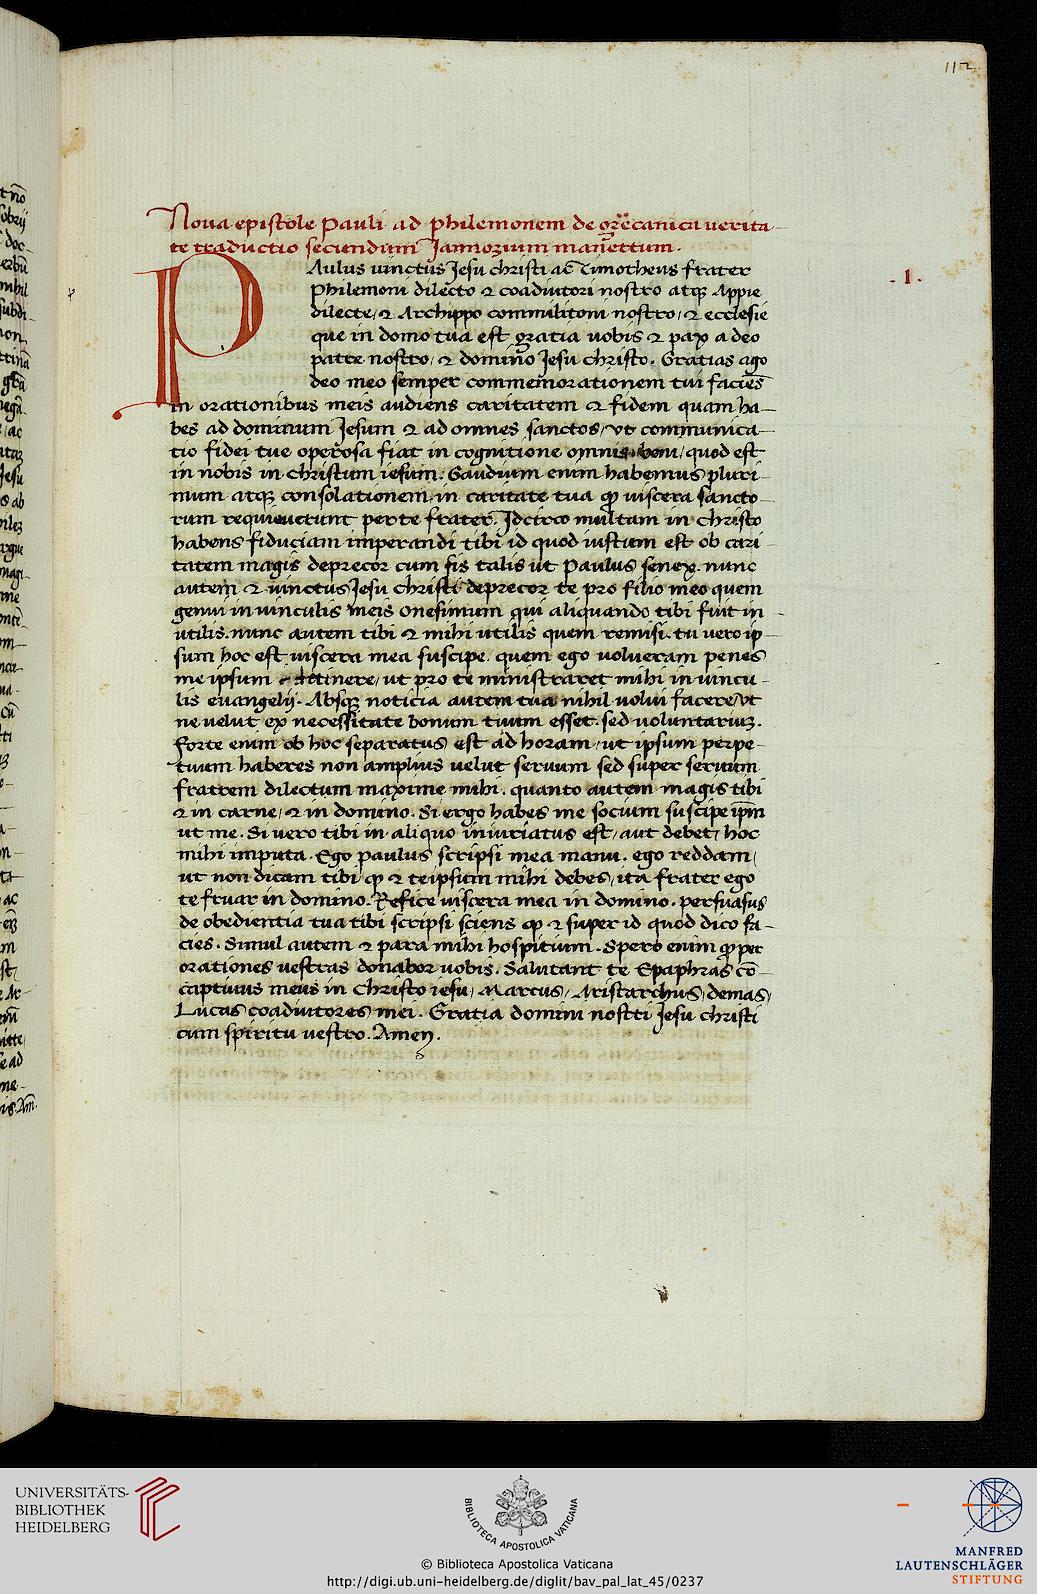 112
Noua epistole Pauli ad philemonem de grecanica uerita
te traductio secundum Jannozium manettum.
.1.
PAulus uinctus Jesu christi ac Timotheus frater
Philemoni dilecto ⁊ coadiutori nostro atqꝫ Appie
dilecte/ ⁊ Archippo commilitoni nostro/ ⁊ ecclesie
que in domo tua est gratia uobis ⁊ pax a deo
patre nostro/ ⁊ domino Jesu christo. Gratias ago
deo meo semper commemorationem tui faciēs
in orationibus meis audiens caritatem ⁊ fidem quam ha-
bes ad dominum Jesum ⁊ ad omnes sanctos/ vt communica-
tio fidei tue operosa fiat in cognitione omnis boni/ quod est
in nobis in christum iesum. Gaudium enim habemus pluri
mum atqꝫ consolationem in caritate tua ꝙ uiscera sancto-
rum requieuerunt per te frater. Idcirco multam in christo
habens fiduciam imperandi tibi id quod iustum est ob cari-
tatem magis deprecor cum sis talis ut Paulus senex. nunc
autem ⁊ uinctus Jesu christi deprecor te pro filio meo quem
genui in uinculis meis onesimum qui aliquando tibi fuit in-
utilis. nunc autem tibi ⁊ mihi utilis quem remisi. tu uero ip-
sum hoc est uiscera mea suscipe. quem ego uolueram penes
me ipsum detinere/ ut pro te ministraret mihi in uincu-
lis euangelij. Absqꝫ noticia autem tua nihil uolui facere/ vt
ne uelut ex necessitate bonum tuum esset. sed uoluntariuꝫ.
forte enim ob hoc separatus est ad horam/ ut ipsum perpe-
tuum haberes non amplius uelut seruum sed super seruum
fratrem dilectum maxime mihi. quanto autem magis tibi
⁊ in carne/ ⁊ in domino. Si ergo habes me socium suscipe ip̄m
ut me. Si uero tibi in aliquo iniuriatus est/ aut debet/ hoc
mihi imputa. Ego paulus scripsi mea manu. ego reddam/
ut non dicam tibi ꝙ ⁊ teipsum mihi debes/ ita frater ego
te fruar in domino. Refice uiscera mea in domino. persuasus
de obedientia tua tibi scripsi sciens ꝙ ⁊ super id quod dico fa-
cies. Simul autem ⁊ para mihi hospitium. Spero enim ꝙ per
orationes uestras donabor uobis. Salutant te Epaphras cō-
captiuus meus in Christo iesu/ Marcus/ Aristarchus/ demas/
Lucas coadiutores mei. Gratia domini nostri Jesu christi
cum spiritu uestro. Amen.
UNIVERSITÄTS-
BIBLIOTHEK
HEIDELBERG
BIBLIOTECA APOSTOLICA VATICANA
MANFRED
LAUTENSCHLÄGER
STIFTUNG
© Biblioteca Apostolica Vaticana
http://digi.ub.uni-heidelberg.de/diglit/bav_pal_lat_45/0237